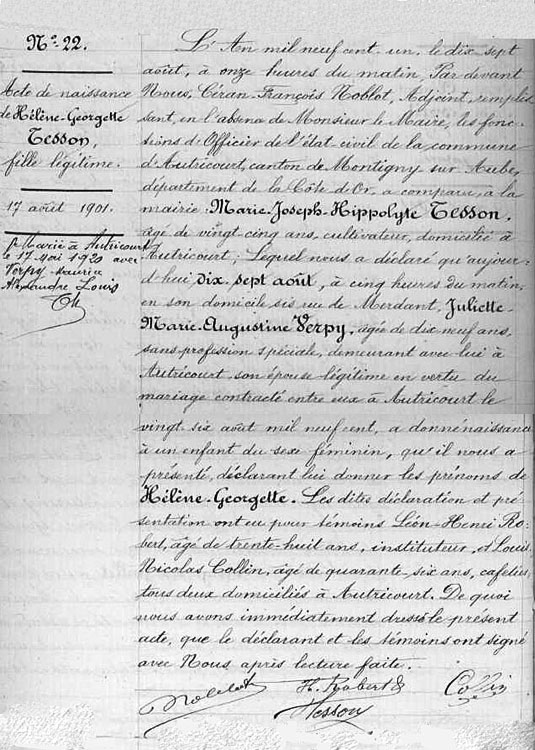 N° 22.
Acte de naissance
de Hélène-Georgette
Tesson,
fille légitime.
17 août 1901.
Marié à Autricourt
le 17 Mai 1920 avec
Verpy Maurice
Alexandre Louis
L'An mil neuf cent un, le dix sept
août, à onze heures du matin, Par devant
Nous, Céran-François Noblot, Adjoint, remplis
sant, en l'absence de Monsieur le Maire, les fonc-
tions d'Officier de l'état civil de la commune
d'Autricourt, canton de Montigny sur Aube,
département de la Côte d'Or, a comparu, à la
mairie: Marie-Joseph-Hippolyte Tesson,
âgé de vingt cinq ans, cultivateur, domicilié à
Autricourt; Lequel nous a déclaré qu'aujour-
d'hui, dix-sept août, à cinq heures du matin,
en son domicile sis rue de Merdant, Juliette-
Marie-Augustine Verpy, âgée de dix neuf ans,
sans profession spéciale, demeurant avec lui à
Autricourt, son épouse légitime en vertu du
mariage contracté entre eux à Autricourt le
vingt six août mil neuf cent, a donné naissance
à un enfant du sexe féminin, qu'il nous a
présenté, déclarant lui donner les prénoms de
Hélène-Georgette. Les dites déclaration et pré-
sentation ont eu pour témoins Léon-Henri Ro-
bert, âgé de trente-huit ans, instituteur, et Louis
Nicolas Collin, âgé de quarante-six ans, cafetier,
tous deux domiciliés à Autricourt. De quoi
nous avons immédiatement dressé le présent
acte, que le déclarant et les témoins ont signé
avec Nous après lecture faite.
Noblot H. Robert Collin
Tesson